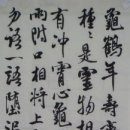 龜鶴年壽齊
種種是靈物相
有沖霄心龜
兩附口相將上
勿語一語墮泥